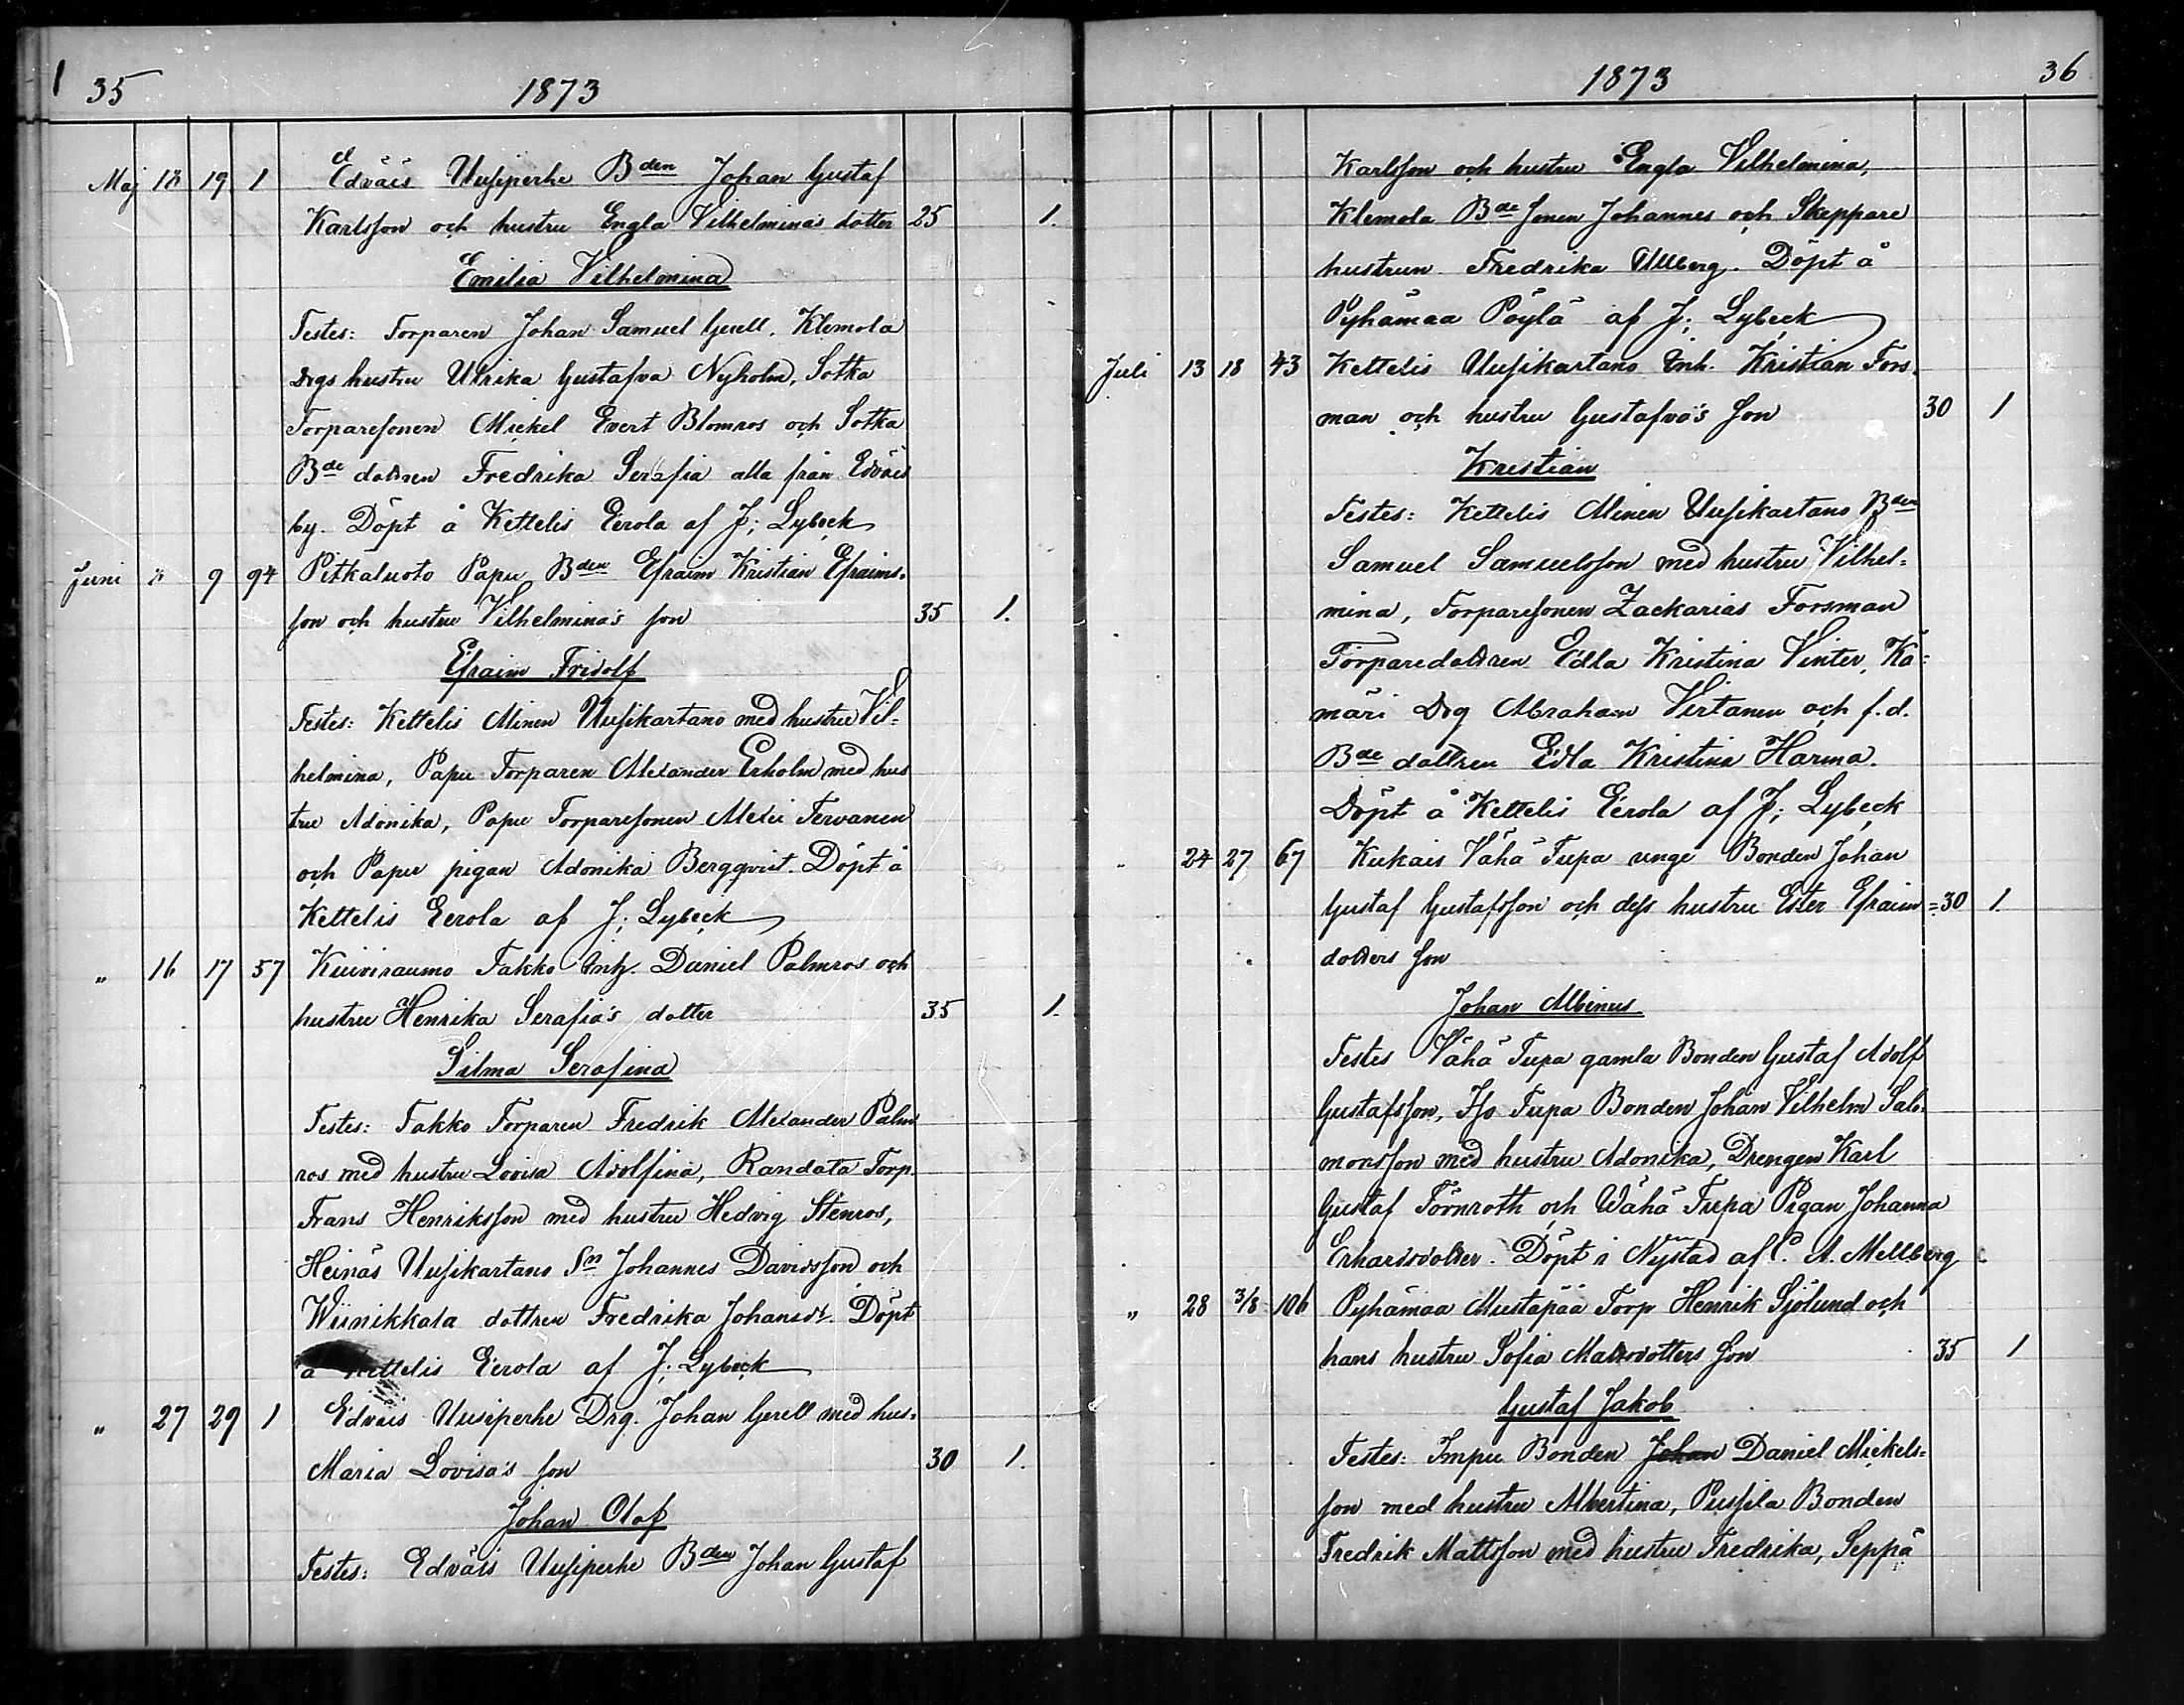 35
1873
Maj 18 19 1 Edväis Uusiperhe Bden Johan Gustaf
Karlsson och hustru Engla Vilhelmina's dotter 25 1.
Emilia Vilhelmina
Testes: Torparen Johan Samuel Gerell, Klemola
Drgs hustru Ulrika Gustafva Nyholm, Sotka
Torparesonen Mickel Evert Blomros och Sotka
Bde dottren Fredrika Serafia alla från Edväis
by. Döpt å Kettelis Eerola af J. Lybeck
Juni 9 94 Pitkäluoto Papu Bden Efraim Kristian Efraims-
son och hustru Vilhelmina's son 35 1.
Efraim Fridolf
Testes: Kettelis Alinen Uusikartano med hustru Vil-
helmina, Papu Torparen Alexander Erholm med hus
tru Adonika, Papu Torparesonen Alexii Tervanen
och Papu pigan Adonika Bergqvist. Döpt å
Kettelis Eerola af J. Lybeck
" 16 17 57 Kuiviraumo Takko Inh. Daniel Palmros och
hustru Henrika Serafia's dotter 35 1.
Silma Serafina
Testes: Takko Torparen Fredrik Alexander Palm
ros med hustru Lovisa Adolfina, Randata Torp.
Frans Henriksson med hustru Hedvig Stenros,
Heinäs Uusikartano Sn Johannes Davidsson och
Wiinikkala dottren Fredrika Johansdr. Döpt
å Kettelis Eerola af J. Lybeck
" 27 29 1 Edväis Uusiperhe Drg. Johan Gerell med hus-
Maria Lovisa's son 30 1.
Johan Olof
Testes: Edväis Uusiperhe Bden Johan Gustaf
1873
36
Karlsson och hustru Engla Vilhelmina,
Klemola Bde sonen Johannes och Skeppare
hustrun Fredrika Ullberg. Döpt å
Pyhämaa Pöylä af J. Lybeck
Juli 13 18 43 Kettelis Uusikartano Inh. Kristian Fors-
man och hustru Gustafva's son 30 1
Kristian
Testes: Kettelis Alinen Uusikartano Bden
Samuel Samuelsson med hustru Vilhel-
mina, Torparesonen Zackarias Forsman
Torparedottren Edla Kristina Vinter, Kä-
märi Drg Abraham Virtanen och f.d.
Bde dottren Edla Kristina Harma.
Döpt å Kettelis Eerola af J. Lybeck
" 24 27 67 Kukais Vähä Tupa unge Bonden Johan
Gustaf Gustafsson och dess hustru Ester Efraim- 30 1.
dotters son
Johan Albinus
Testes Vähä Tupa gamla Bonden Gustaf Adolf
Gustafsson, Iso Tupa Bonden Johan Vilhelm Salo-
monsson med hustru Adonika, Drengen Karl
Gustaf Törnroth och Wähä Tupa Pigan Johanna
Erhardsdotter. Döpt i Nystad af C. A. Mellberg
" 28 3/8 106 Pyhämaa Mustapää Torp Henrik Sjölund och
hans hustru Sofia Mattsdotters son 35 1
Gustaf Jakob
Testes: Impu Bonden Johan Daniel Mickels-
son med hustru Albertina, Pussila Bonden
Fredrik Mattsson med hustru Fredrika, Seppä